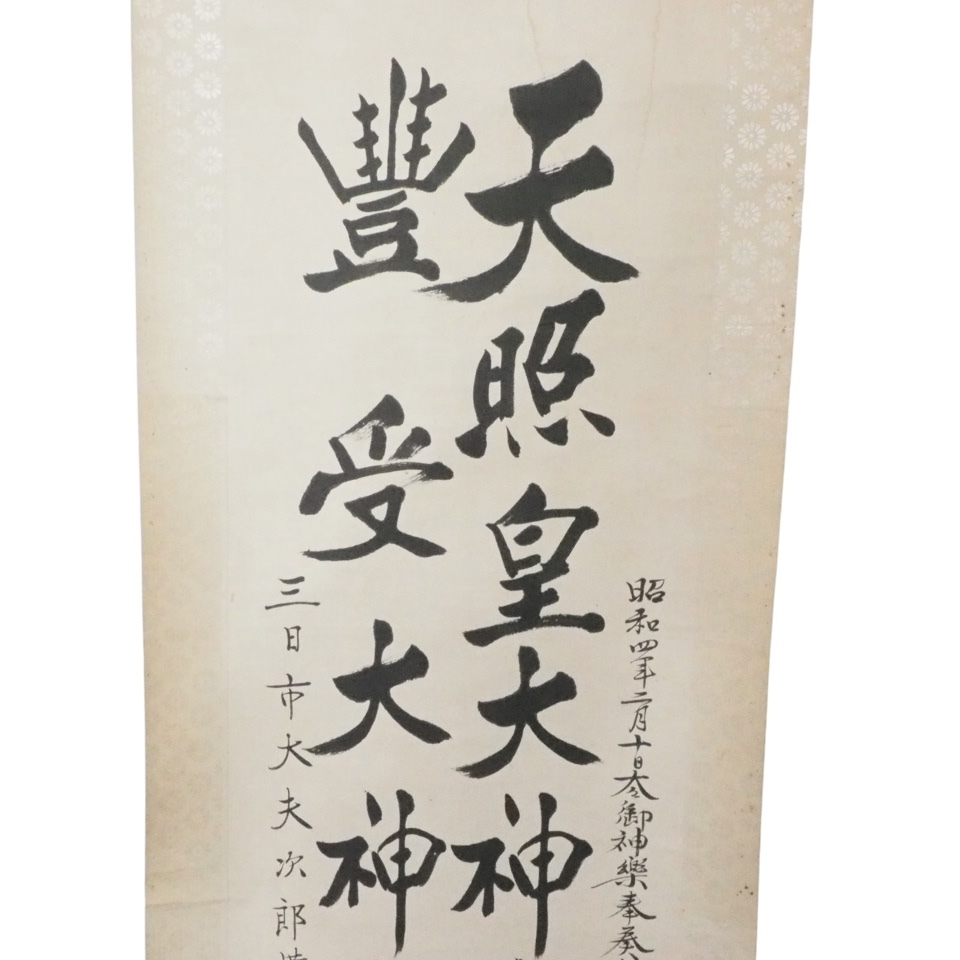 昭和四年二月十日太々御神樂奉奏
天照皇大神
豐受大神
三日市大夫次郎